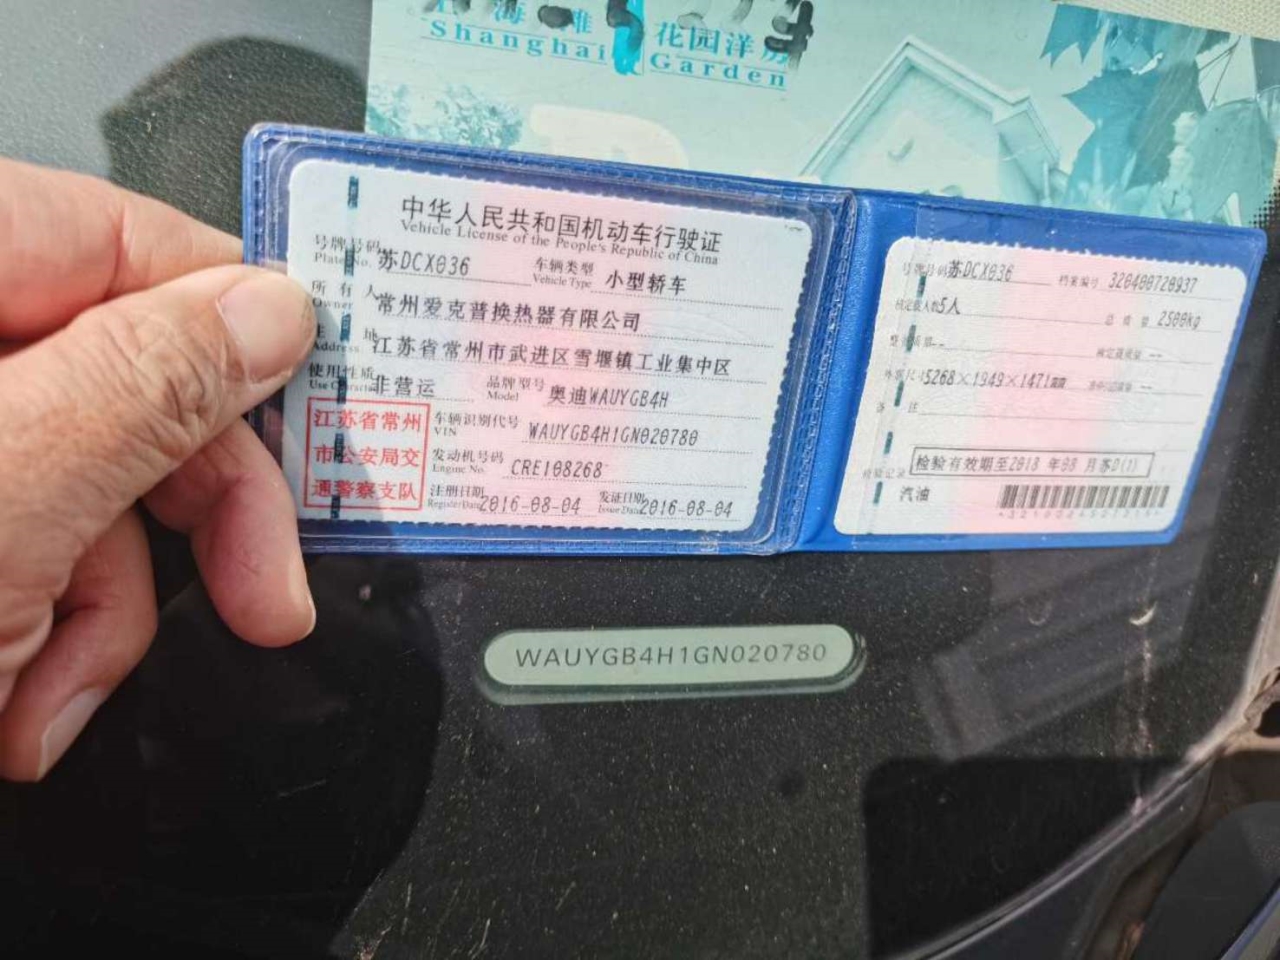 花园洋
Shanghai Garden
中华人民共和国机动车行驶证
Vehicle License of the People's Republic of China
号牌号码 苏DCX036 车辆类型 小型轿车
Plate No. Vehicle Type
所有人 常州爱克普换热器有限公司
Owner
住 地 江苏省常州市武进区雪堰镇工业集中区
Address
使用性质 非营运 品牌型号 奥迪WAUYGB4H
Use Character Model
江苏省常州
市公安局交
通警察支队
车辆识别代号 WAUYGB4H1GN020780
VIN
发动机号码 CRE108268
Engine No.
注册日期 2016-08-04 发证日期 2016-08-04
Register Date Issue Date
号牌号码 苏DCX036 档案编号 320400720937
核定载人数 5人 总质量 2500kg
整备质量 -- 核定载质量 --
外廓尺寸 5268×1949×1471 --
备注
检验记录 检验有效期至2018 年08 月苏D(1)
汽油
WAUYGB4H1GN020780